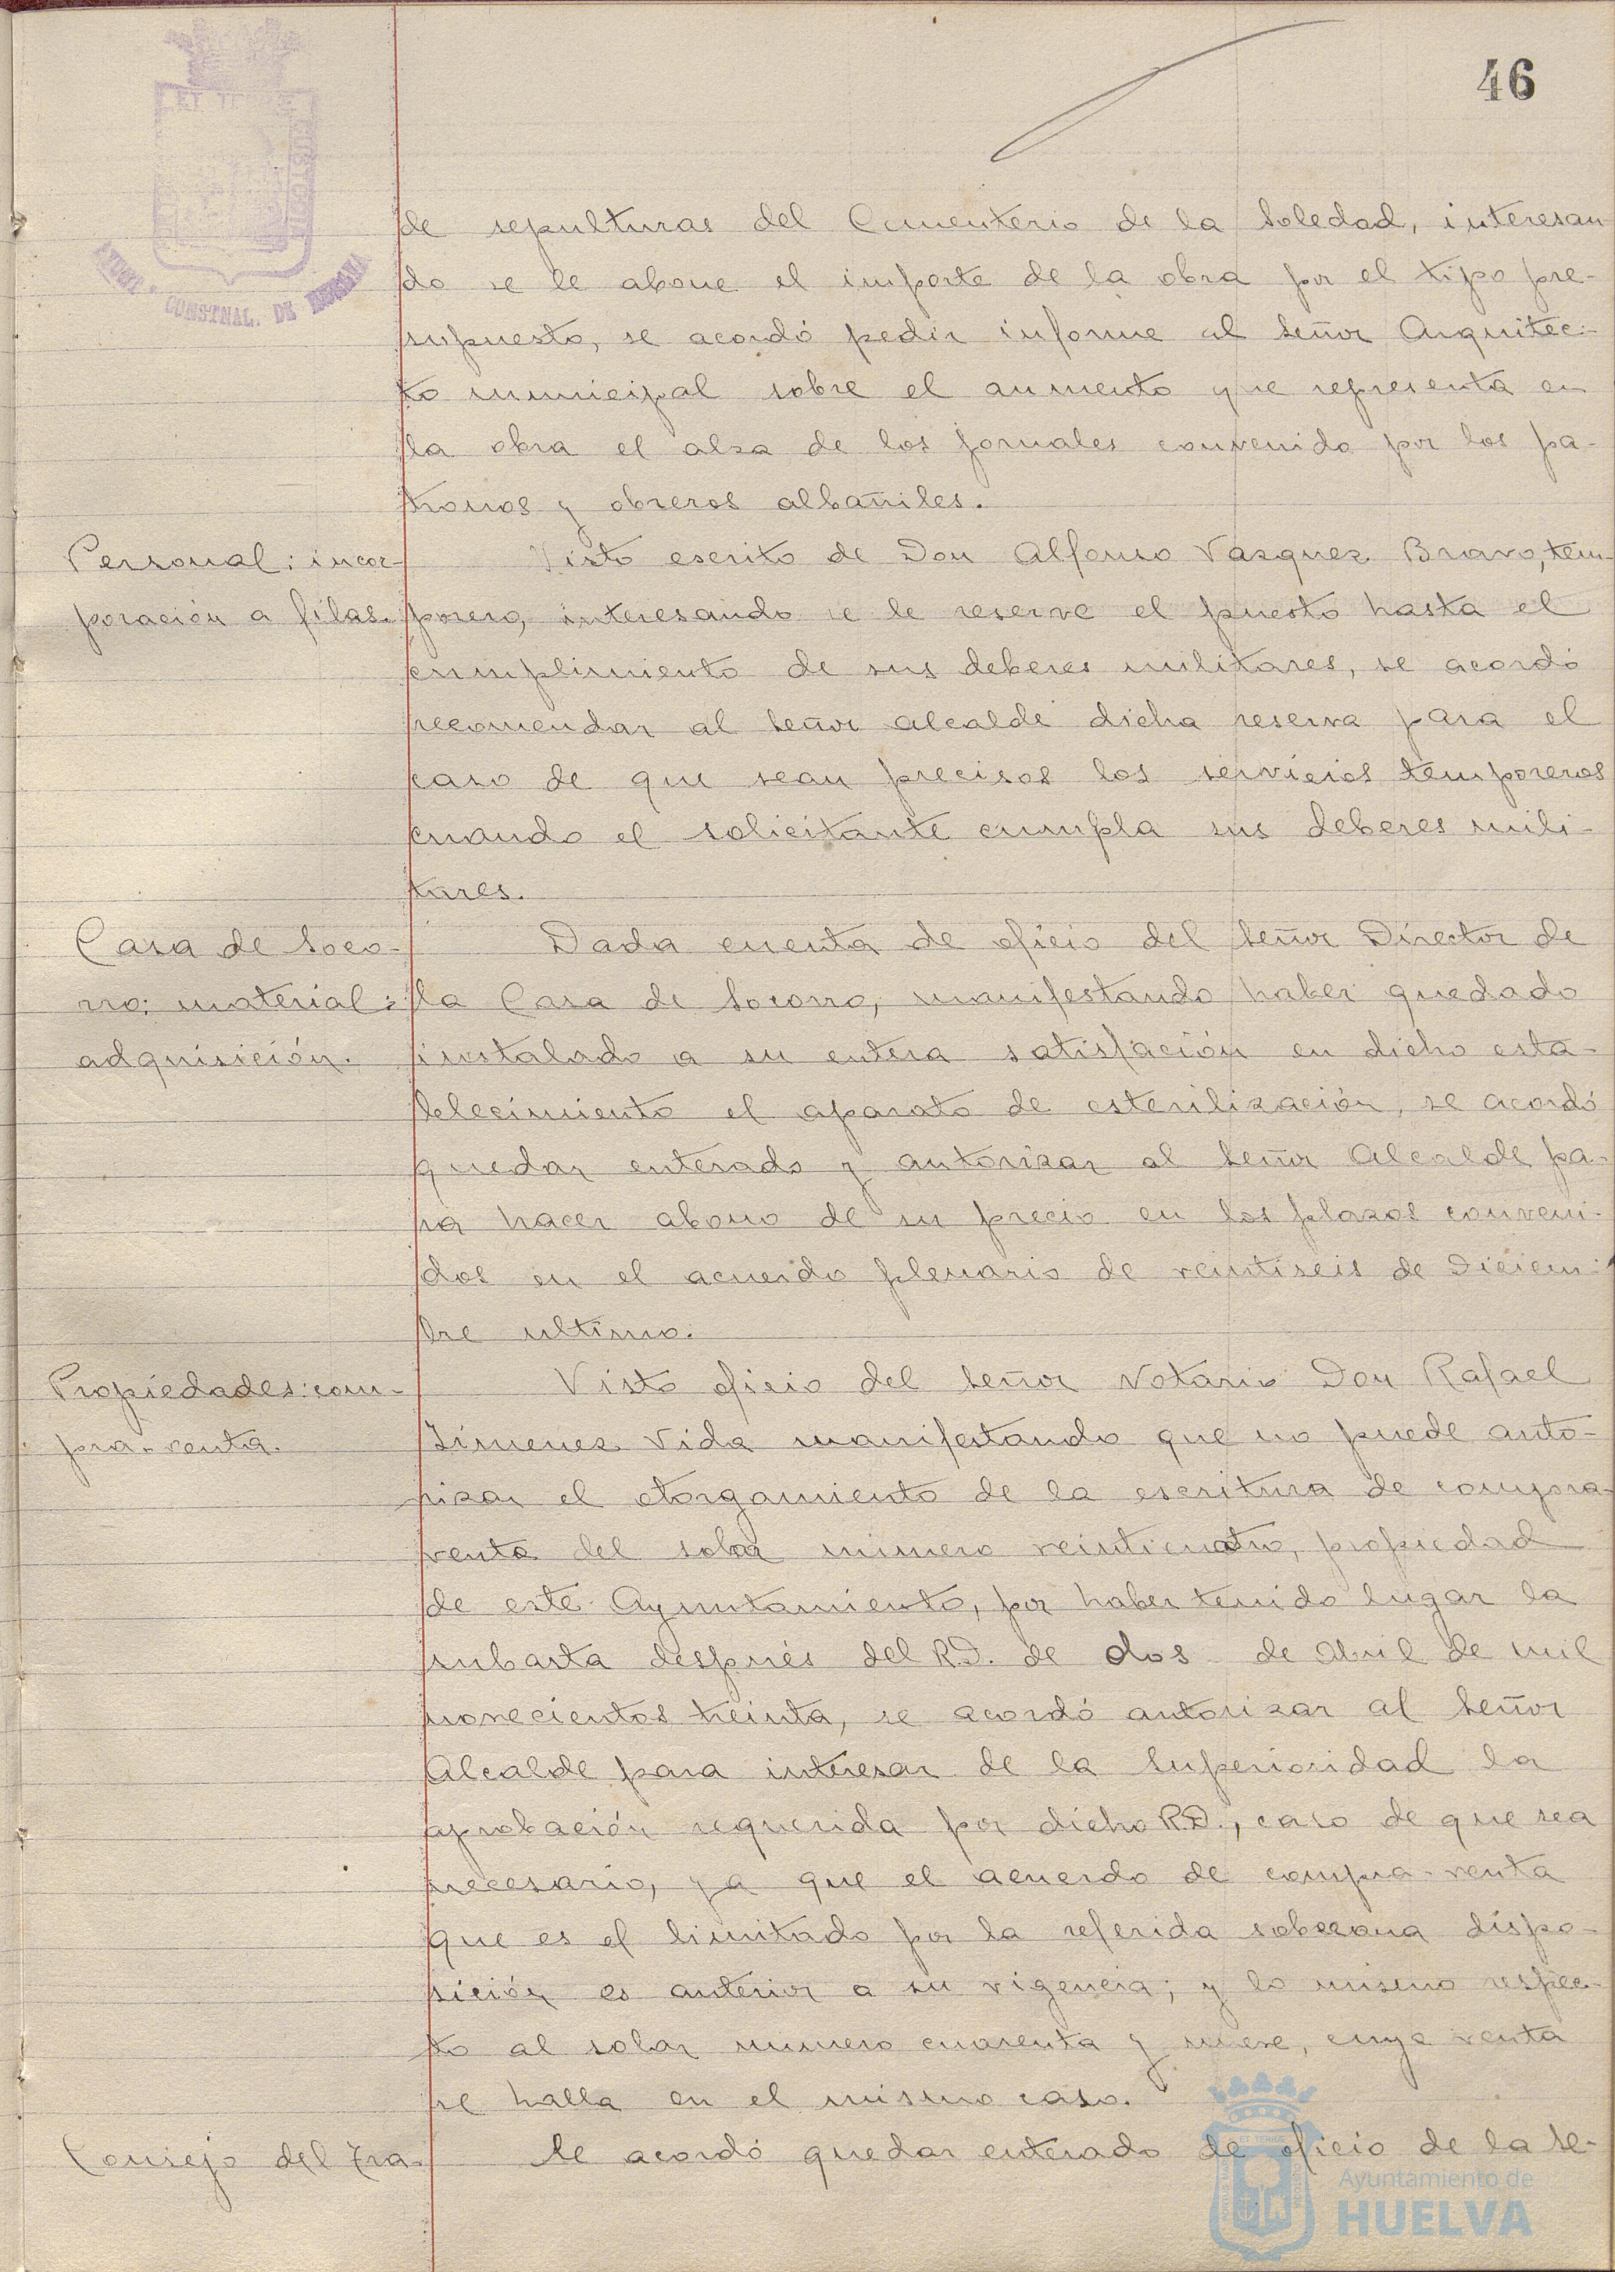 46
ET TERRE
CUSTODIA
CONSTNAL. DE
de sepulturas del Cementerio de la Soledad, interesan
do se le abone el importe de la obra por el tipo pre-
supuesto, se acordó pedir informe al Señor Arquitec-
to municipal sobre el aumento que representa en
la obra el alza de los jornales convenido por los pa-
tronos y obreros albañiles.
Personal: incor-
poración a filas.
Visto escrito de Don Alfonso Vazquez Bravo, tem-
porero, interesando se le reserve el puesto hasta el
cumplimiento de sus deberes militares, se acordó
recomendar al Señor alcalde dicha reserva para el
caso de que sean precisos los servicios temporeros
cuando el solicitante cumpla sus deberes mili-
tares.
Casa de Soco-
rro: material:
adquisición.
Dada cuenta de oficio del Señor Director de
la Casa de Socorro, manifestando haber quedado
instalado a su entera satisfación en dicho esta-
blecimiento el aparato de esterilización, se acordó
quedar enterado y autorizar al Señor Alcalde pa-
ra hacer abono de su precio en los plazos conveni-
dos en el acuerdo plenario de veintiseis de Diciem-
bre ultimo.
Propiedades: com-
pra-venta.
Visto oficio del Señor Notario Don Rafael
Jimenez Vida manifestando que no puede auto-
rizar el otorgamiento de la escritura de compra-
venta del solar número veinticuatro, propiedad
de este Ayuntamiento, por haber tenido lugar la
subasta después del R.D. de dos de Abril de mil
novecientos treinta, se acordó autorizar al Señor
Alcalde para interesar de la Superioridad la
aprobación requerida por dicho R.D., caso de que sea
necesario, ya que el acuerdo de compra-venta
que es el limitado por la referida soberana dispo-
sición es anterior a su vigencia; y lo mismo respec-
to al solar numero cuarenta y nueve, cuya venta
se halla en el mismo caso.
Consejo del Tra-
Se acordó quedar enterado de oficio de la Se-
Ayuntamiento de
HUELVA